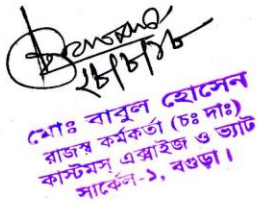 ২৮/৮/১৮
মোঃ বাবুল হোসেন
রাজস্ব কর্মকর্তা (চঃ দাঃ)
কাস্টমস্ এক্সাইজ ও ভ্যাট
সার্কেল-১, বগুড়া।